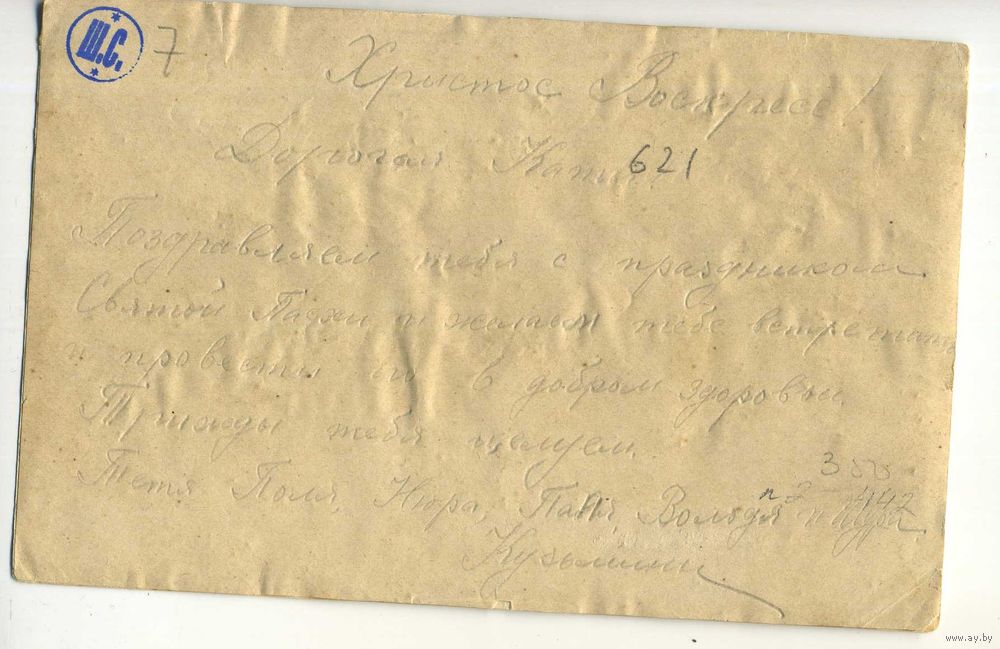 Ш.С.
7
Христос Воскресе!
Дорогая Катя!
621
Поздравляем тебя с праздником
Святой Пасхи и желаем тебе встретить
и провести его в добром здоровьи
Трижды тебя целуем.
3
Тетя Поля, Нюра, Паня, Володя и
Кузьмины
www.ay.by